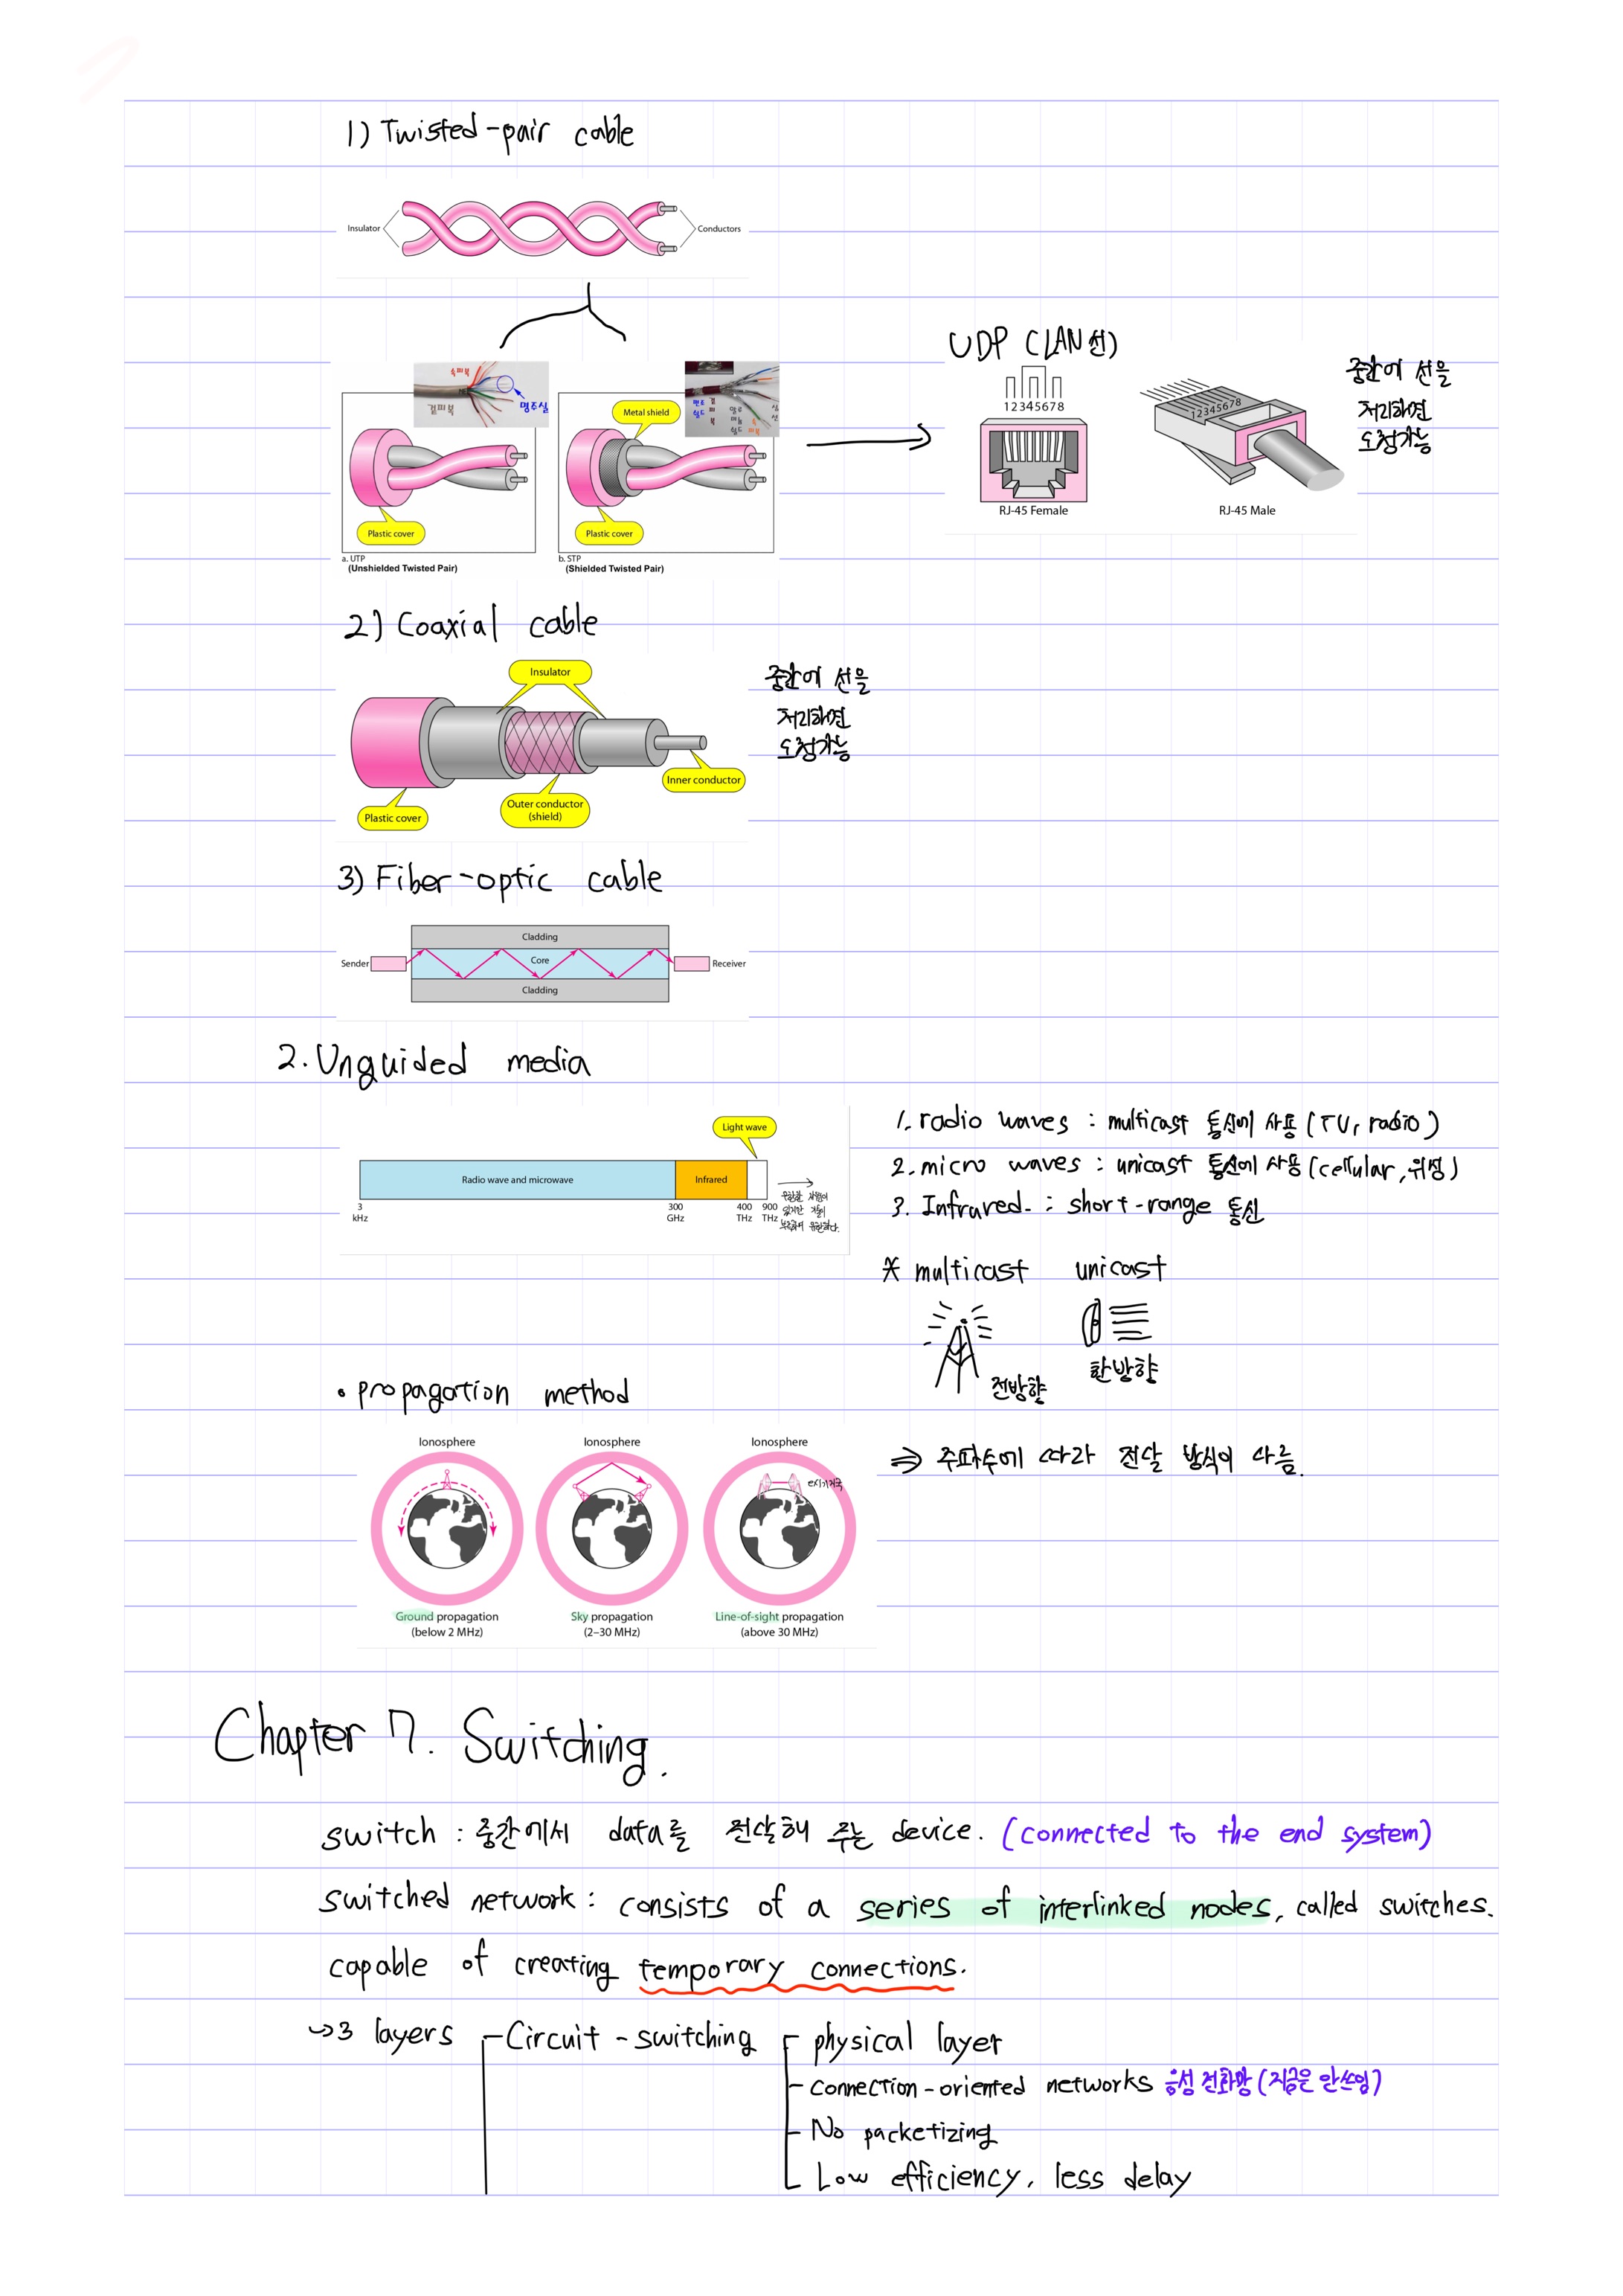 1) Twisted-pair cable
Insulator
Conductors
속피복
겉피복
명주실
Metal shield
Plastic cover
Plastic cover
a. UTP
(Unshielded Twisted Pair)
b. STP
(Shielded Twisted Pair)
UDP (LAN선)
12345678
12345678
RJ-45 Female
RJ-45 Male
중간에 선을
처리하면
도청가능
2) Coaxial cable
Insulator
Inner conductor
Outer conductor
(shield)
Plastic cover
중간에 선을
처리하면
도청가능
3) Fiber-optic cable
Cladding
Sender
Core
Receiver
Cladding
2. Unguided media
Light wave
Radio wave and microwave
Infrared
3
kHz
300
GHz
400
THz
900
THz
1. radio waves : multicast 통신에 사용 (TV, radio)
2. micro waves : unicast 통신에 사용 (cellular, 위성)
3. Infrared. : short-range 통신
* multicast unicast
전방향
한방향
• propagation method
Ionosphere
Ionosphere
Ionosphere
Ground propagation
(below 2 MHz)
Sky propagation
(2–30 MHz)
Line-of-sight propagation
(above 30 MHz)
⇒ 주파수에 따라 전달 방식이 다름.
Chapter 7. Switching.
switch : 중간에서 data를 전달해 주는 device. (connected to the end system)
switched network : consists of a series of interlinked nodes, called switches.
capable of creating temporary connections.
→3 layers
Circuit - switching
physical layer
connection-oriented networks 음성 전화망 (지금은 안쓰임)
No packetizing
Low efficiency, less delay